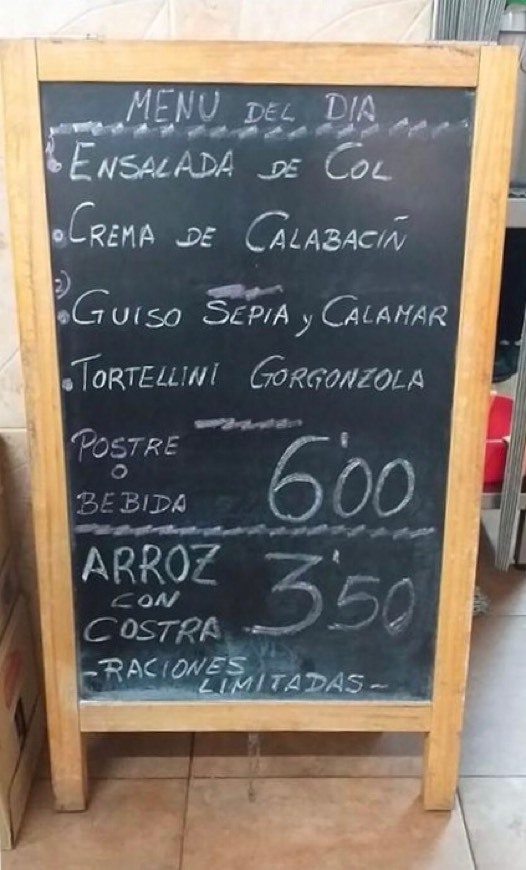 MENU DEL DIA
1)
• ENSALADA DE COL
• CREMA DE CALABACIÑ
2)
• GUISO SEPIA y CALAMAR
• TORTELLINI GORGONZOLA
POSTRE
O
BEBIDA
6'00
ARROZ
CON
COSTRA
3'50
-RACIONES
LIMITADAS-